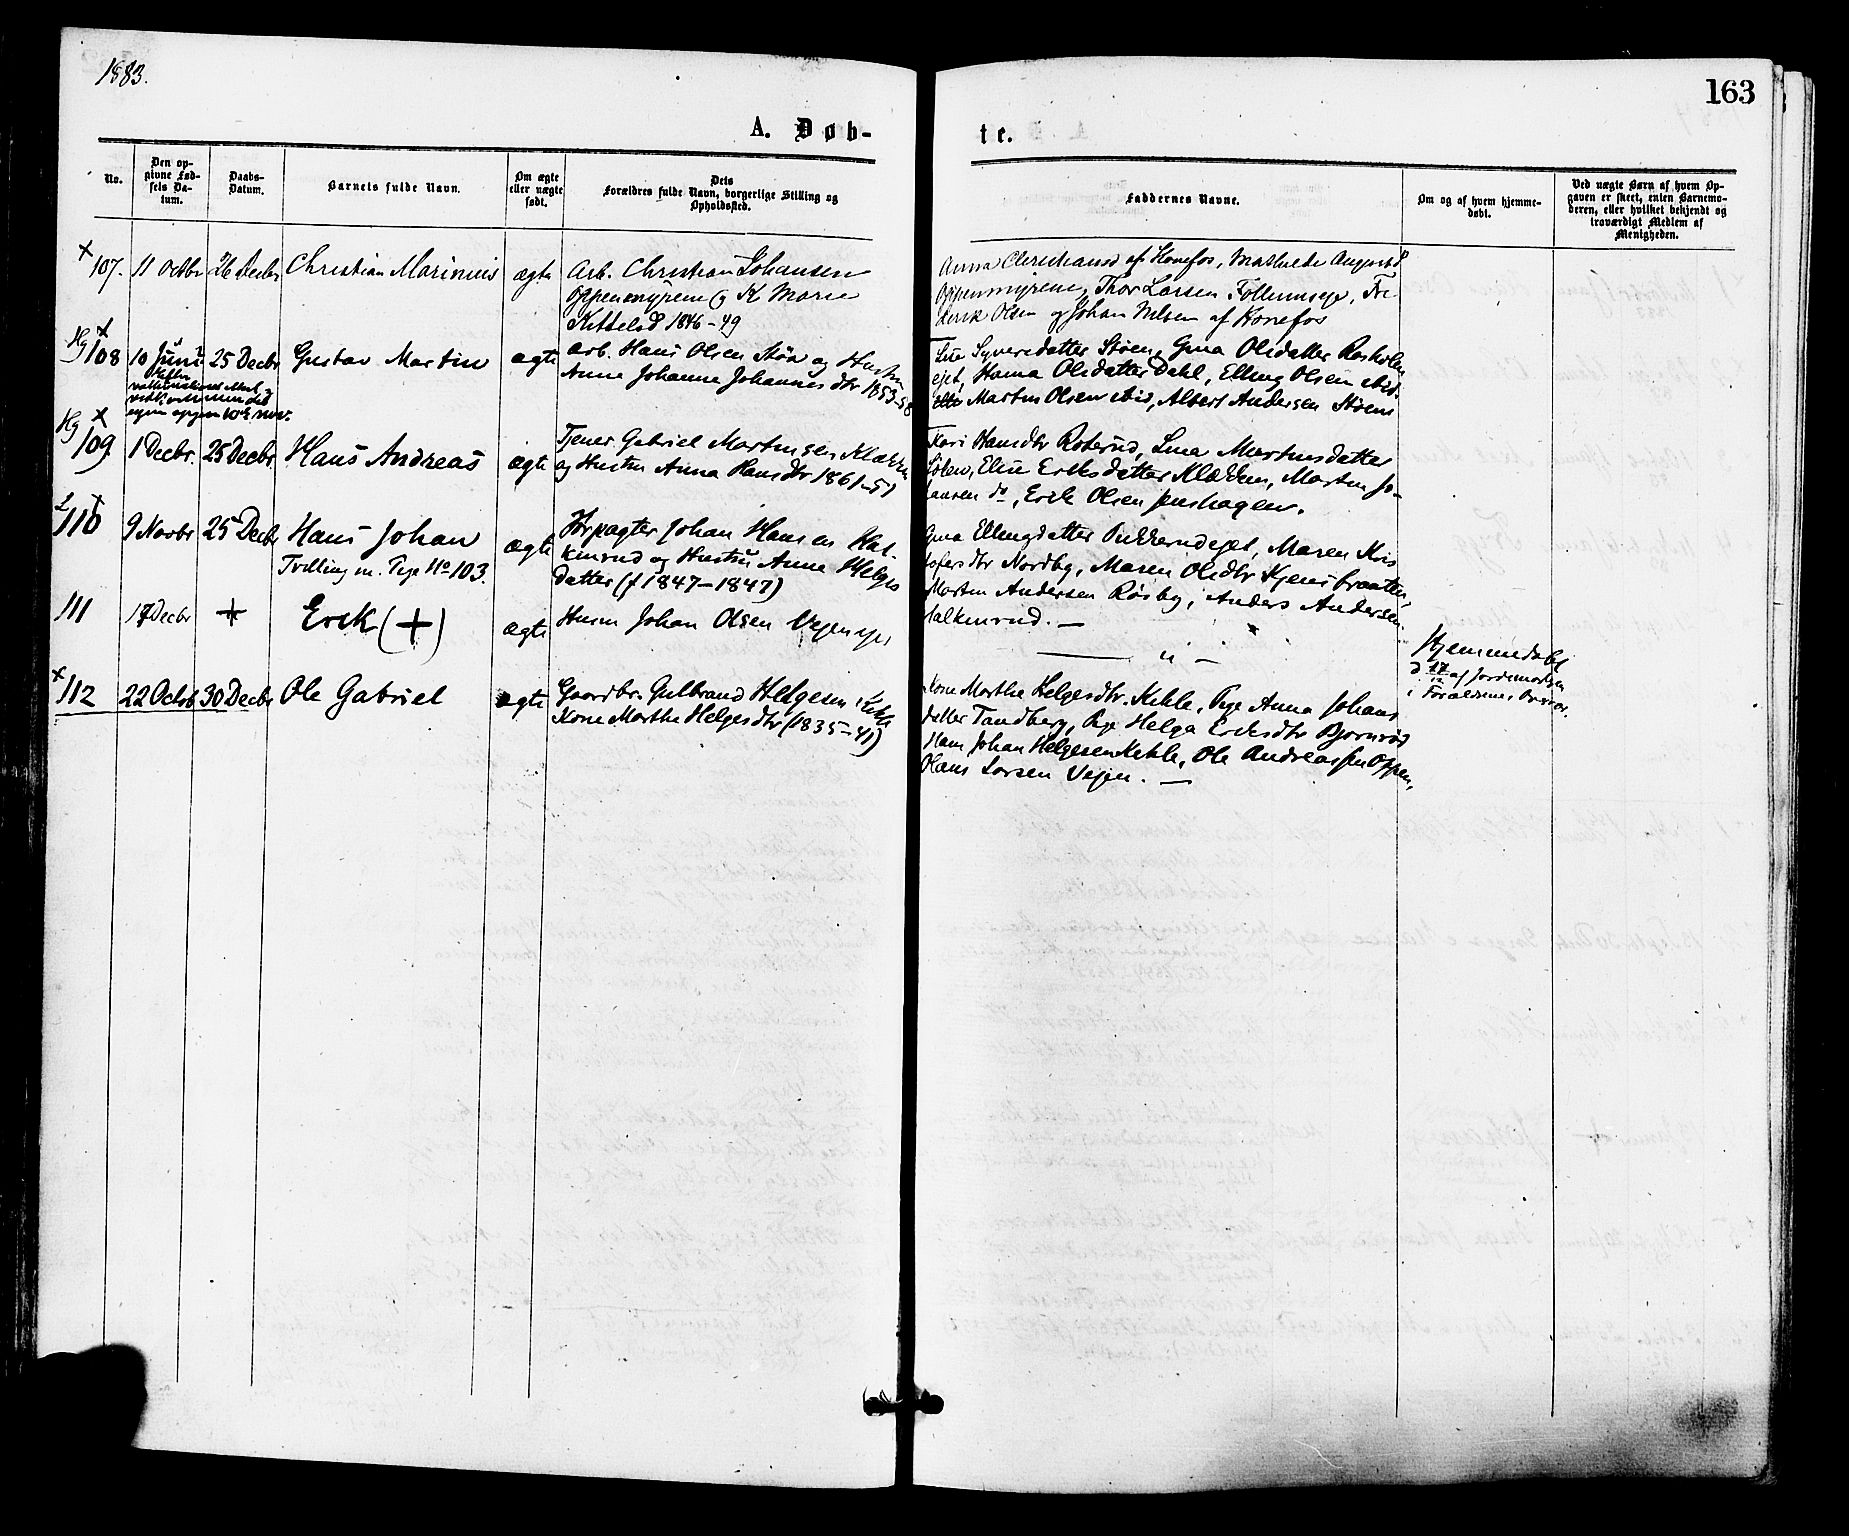 1883.
163
A. Døb-
te.
No.
Den op-
givne Fød-
sels Da-
tum.
Daabs-
Datum.
Barnets fulde Navn.
Om ægte
eller uægte
født.
Dets
Forældres fulde Navn, borgerlige Stilling og
Opholdssted.
Faddernes Navne.
Om og af hvem hjemme-
døbt.
Ved uægte Børn af hvem Op-
gaven er skeet, enten Barnemo-
deren, eller hvilket bekjendt og
troværdigt Medlem af
Menigheden.
107. 11 Octbr 26 Decbr Christian Marinius ægte Arb. Christian Johansen
Oppenmyrene og K Marie
Kittelsd 1846-49
Anna Christiansd af Hønefos, Mathilde Augustd
Oppenmyrene, Thor Larsen Follumseje, Fre
derik Olsen og Johan Nilsen af Hønefos
Hg 108 10 Juni 25 Decbr Gustav Martin ægte Arb. Hans Olsen Støa og Hustru
Anne Johanne Johannesdtr 1853-58
egen opgave
Syversdatter Støen, Gina Olsdatter Rosholm
ejet, Hanna Olsdatter Dahl, Elling Olsen ibid.
Martin Olsen ibid, Albert Andersen Støens
Hg 109 1 Decbr. 25 Decbr Hans Andreas ægte Tjener Gabriel Martinsen Klækken
og Hustru Anna Hansdtr 1861-51
Kari Hansdtr Roterud, Lina Martinsdatter
Eline Eriksdatter Klækken, Martin Jo-
hansen do, Erik Olsen Jenshagen.
110 9 Novbr 25 Decbr Hans Johan ægte Forpagter Johan Hansen Hal-
kinrud og Hustru Anne Helges
datter (f 1847-1847)
Tvilling m. Pige No 103.
Gina Ellingsdatter Maren Kris
tofersdtr Nordby, Maren Olsdtr Kjensbraaten,
Martin Andersen Røsby, Anders Andersen
Halkinrud. —
111 17 Decbr + Erik (+) ægte Husm Johan Olsen Vejenseje
— " —
Hjemmedøbt
d 17/12 af Jordemoderen
i Forældrenes
112 22 Octbr 30 Decbr Ole Gabriel ægte Gaardbr. Gulbrand Helgesen Kihle
Kone Marthe Helgesdtr (1835-41)
Kone Marthe Helgesdtr. Kihle, Pige Anna Johans
datter Tandberg, Pige Helga Eriksdtr Bjørnrød
Johan Helgesen Kihle, Ole Andreassen Oppen,
Hans Larsen Vejen. —